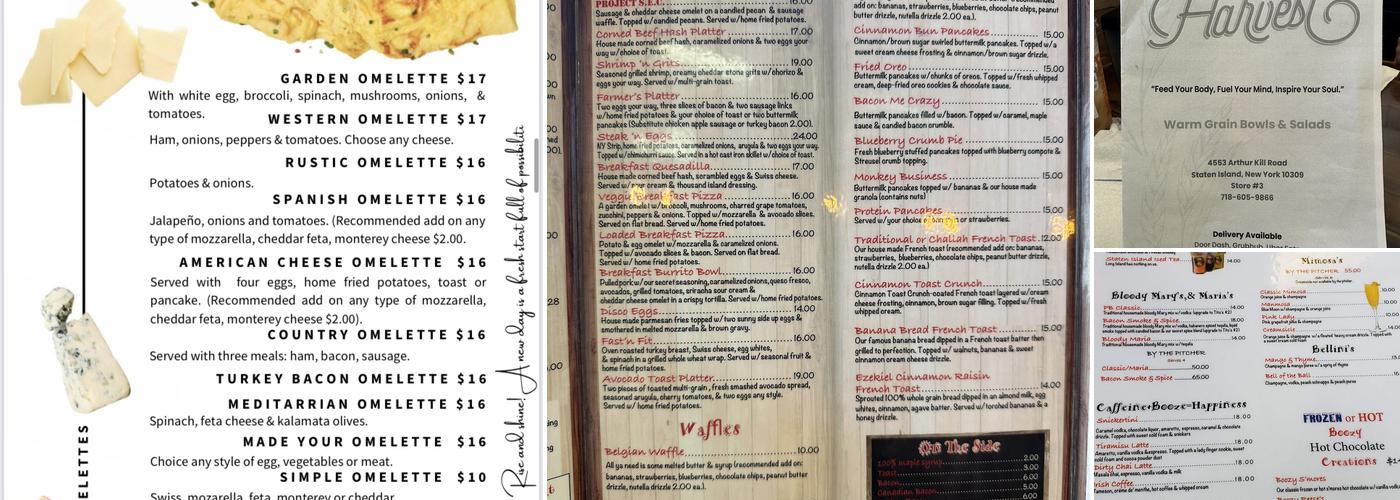 GARDEN OMELETTE $17
With white egg, broccoli, spinach, mushrooms, onions, &
tomatoes.
WESTERN OMELETTE $17
Ham, onions, peppers & tomatoes. Choose any cheese.
RUSTIC OMELETTE $16
Potatoes & onions.
SPANISH OMELETTE $16
Jalapeño, onions and tomatoes. (Recommended add on any
type of mozzarella, cheddar feta, monterey cheese $2.00.
AMERICAN CHEESE OMELETTE $16
Served with four eggs, home fried potatoes, toast or
pancake. (Recommended add on any type of mozzarella,
cheddar feta, monterey cheese $2.00).
COUNTRY OMELETTE $16
Served with three meals: ham, bacon, sausage.
TURKEY BACON OMELETTE $16
MEDITARRIAN OMELETTE $16
Spinach, feta cheese & kalamata olives.
MADE YOUR OMELETTE $16
Choice any style of egg, vegetables or meat.
SIMPLE OMELETTE $10
Swiss, mozzarella, feta, monterey or cheddar
ELETTES
Rise and shine! A new day is a fresh start full of possibiliti
PROJECT S.E.C.
Sausage & cheddar cheese omelet on a candied pecan & sausage
waffle. Topped w/candied pecans. Served w/home fried potatoes.
Corned Beef Hash Platter 17.00
House made corned beef hash, caramelized onions & two eggs your
way w/choice of toast.
Shrimp 'n Grits 19.00
Seasoned grilled shrimp, creamy cheddar stone grits w/chorizo &
eggs your way. Served w/multi-grain toast.
Farmer's Platter 16.00
Two eggs your way, three slices of bacon & two sausage links
w/home fried potatoes & your choice of toast or two buttermilk
pancakes (Substitute chicken apple sausage or turkey bacon 2.00).
Steak 'n Eggs 24.00
NY Strip, home fried potatoes, caramelized onions, arugula & two eggs your way.
Topped w/chimichurri sauce. Served in a hot cast iron skillet w/choice of toast.
Breakfast Quesadilla 17.00
House made corned beef hash, scrambled eggs & Swiss cheese.
Served w/sour cream & thousand island dressing.
Veggie Breakfast Pizza 16.00
A garden omelet w/broccoli, mushrooms, charred grape tomatoes,
zucchini, peppers & onions. Topped w/mozzarella & avocado slices.
Served on flat bread. Served w/home fried potatoes.
Loaded Breakfast Pizza 16.00
Potato & egg omelet w/mozzarella & caramelized onions.
Topped w/avocado slices & bacon. Served on flat bread.
Served w/ home fried potatoes.
Breakfast Burrito Bowl 16.00
Pulled pork w/our secret seasoning, caramelized onions, queso fresco,
avocados, grilled tomatoes, sriracha sour cream &
cheddar cheese omelet in a crispy tortilla. Served w/home fried potatoes.
Disco Eggs 14.00
House made parmesan fries topped w/two sunny side up eggs &
smothered in melted mozzarella & brown gravy.
Fast'n Fit 16.00
Oven roasted turkey breast, Swiss cheese, egg whites,
& spinach in a grilled whole wheat wrap. Served w/seasonal fruit &
home fried potatoes.
Avocado Toast Platter 19.00
Two pieces of toasted multi-grain, fresh smashed avocado spread,
seasoned arugula, cherry tomatoes, & two eggs any style.
Served w/ home fried potatoes.
Waffles
Belgian Waffle 10.00
All ya need is some melted butter & syrup (recommended add on:
bananas, strawberries, blueberries, chocolate chips, peanut butter
drizzle, nutella drizzle 2.00 ea.).
add on: bananas, strawberries, blueberries, chocolate chips, peanut
butter drizzle, nutella drizzle 2.00 ea.).
Cinnamon Bun Pancakes 15.00
Cinnamon/brown sugar swirled buttermilk pancakes. Topped w/a
sweet cream cheese frosting & cinnamon/brown sugar drizzle.
Fried Oreo 15.00
Buttermilk pancakes w/chunks of oreos. Topped w/fresh whipped
cream, deep-fried oreo cookies & chocolate sauce.
Bacon Me Crazy 15.00
Buttermilk pancakes filled w/bacon. Topped w/caramel, maple
sauce & candied bacon crumble.
Blueberry Crumb Pie 15.00
Fresh blueberry stuffed pancakes topped w/blueberry compote &
Streusel crumb topping.
Monkey Business 15.00
Buttermilk pancakes topped w/ bananas & our house made
granola (contains nuts)
Protein Pancakes 15.00
Served w/your choice of banana or strawberries.
Traditional or Challah French Toast 12.00
Our house made French toast (recommended add on: bananas,
strawberries, blueberries, chocolate chips, peanut butter drizzle,
nutella drizzle 2.00 ea.)
Cinnamon Toast Crunch 15.00
Cinnamon Toast Crunch-coated French toast layered w/cream
cheese frosting, cinnamon, brown sugar filling. Topped w/fresh
whipped cream.
Banana Bread French Toast 15.00
Our famous banana bread dipped in a French toast batter then
grilled to perfection. Topped w/ walnuts, bananas & sweet
cinnamon cream cheese drizzle.
Ezekiel Cinnamon Raisin
French Toast 14.00
Sprouted 100% whole grain bread dipped in an almond milk, egg
whites, cinnamon, agave batter. Served w/torched bananas & a
honey drizzle.
On The Side
100% maple syrup 2.00
Toast 3.00
Bacon 6.00
Canadian Bacon 6.00
Harvest
"Feed Your Body, Fuel Your Mind, Inspire Your Soul."
Warm Grain Bowls & Salads
4553 Arthur Kill Road
Staten Island, New York 10309
Store #3
718-605-9866
Delivery Available
Door Dash, Grubhub, Uber Eats
Staten Island Iced Tea 14.00
Long Island has nothing on us.
Bloody Mary's, & Maria's
PB Classic 14.00
Bacon Smoke & Spice 18.00
Bloody Maria 14.00
BY THE PITCHER
Classic/Maria 50.00
Bacon Smoke & Spice 65.00
Caffeine+Booze=Happiness
Snickertini 18.00
Tiramisu Latte 18.00
Dirty Chai Latte 18.00
Irish Coffee 18.00
Mimosa's
BY THE PITCHER 55.00
Classic Mimosa
Orange juice & champagne
Manmosa
Pink Lady
Creamsicle
Bellini's
Mango & Thyme
Bell of the Ball
FROZEN or HOT
Boozy
Hot Chocolate
Creations
Boozy S'mores